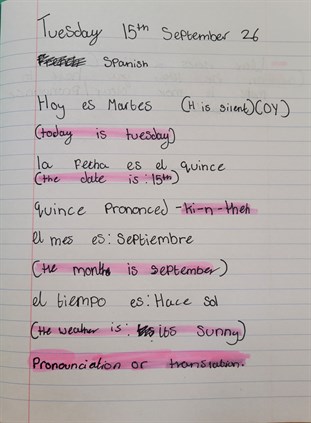 Tuesday 15th September 26
Spanish
Hoy es Martes (H is silent)(OY)
(today is tuesday)
la fecha es el quince
(the date is: 15th)
quince Prononced - ki-n-theh
el mes es: Septiembre
(the month is september)
el tiempo es: Hace sol
(the weather is: its sunny)
Pronounciation or translation.